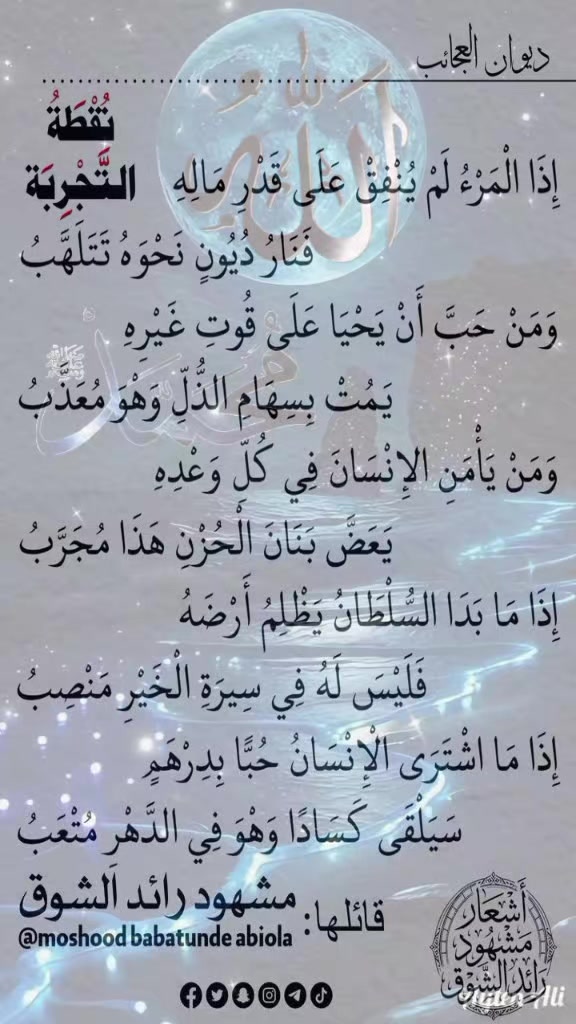 ديوان العجائب
نُقْطَةُ
التَّجْرِبَة
إِذَا الْمَرْءُ لَمْ يُنْفِقْ عَلَى قَدْرِ مَالِهِ
فَنَارُ دُيُونٍ نَحْوَهُ تَتَلَهَّبُ
وَمَنْ حَبَّ أَنْ يَحْيَا عَلَى قُوتِ غَيْرِهِ
يَمُتْ بِسِهَامِ الذُّلِّ وَهْوَ مُعَذَّبُ
وَمَنْ يَأْمَنِ الإِنْسَانَ فِي كُلِّ وَعْدِهِ
يَعَضَّ بَنَانَ الْحُزْنِ هَذَا مُجَرَّبُ
إِذَا مَا بَدَا السُّلْطَانُ يَظْلِمُ أَرْضَهُ
فَلَيْسَ لَهُ فِي سِيرَةِ الْخَيْرِ مَنْصِبُ
إِذَا مَا اشْتَرَى الْإِنْسَانُ حُبًّا بِدِرْهَمٍ
سَيَلْقَى كَسَادًا وَهْوَ فِي الدَّهْرِ مُتْعَبُ
قائلها: مشهود رائد الشوق
@moshood babatunde abiola
أشعار
مشهود
رائد الشوق
الله
محمد
ﷺ
Ali